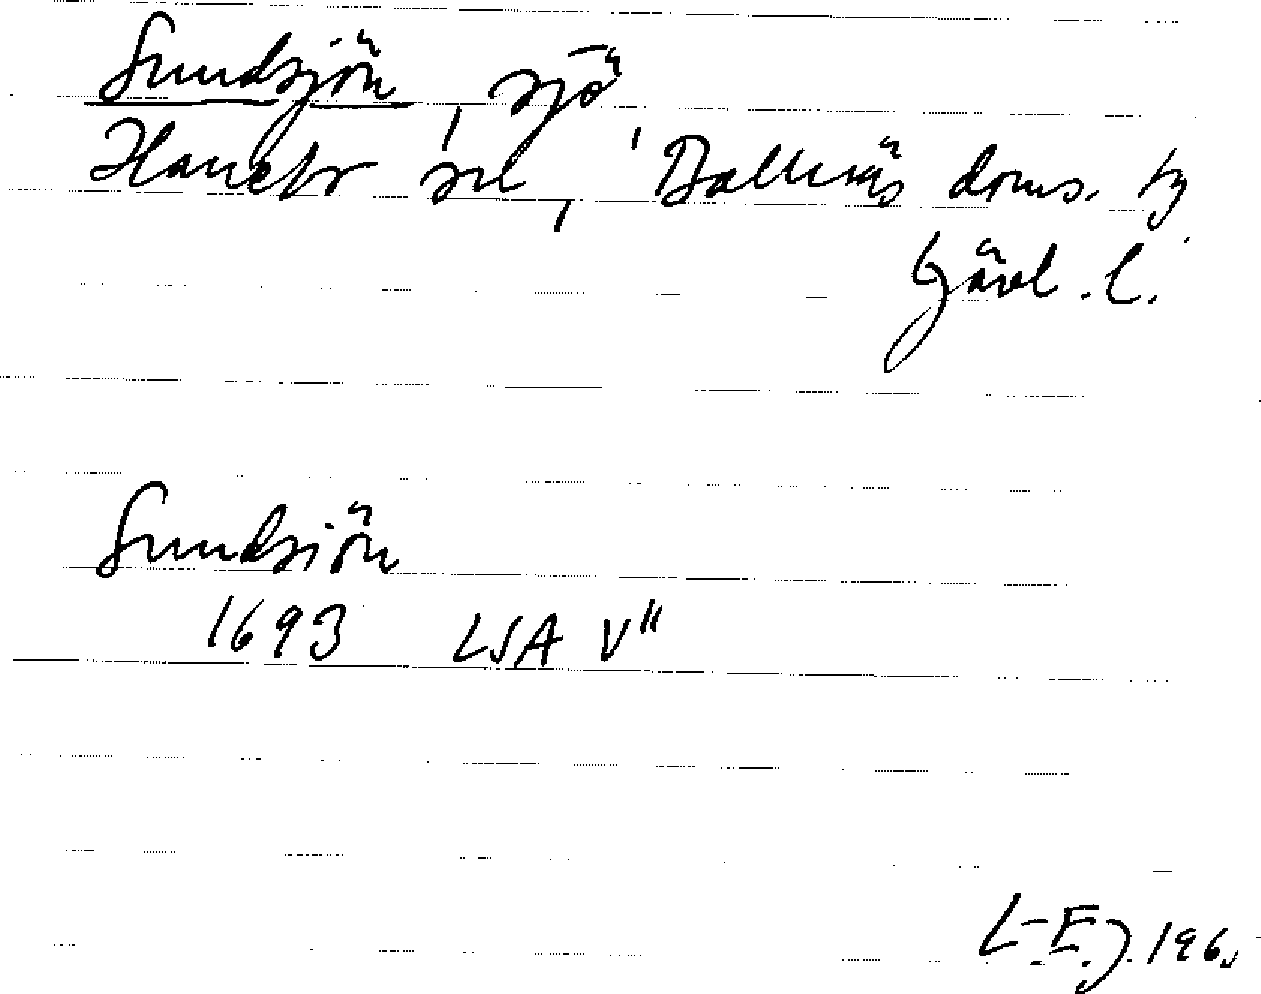 Sundsjön, sjö
Hanebo sn, Bollnäs doms. hg
Gävl. l.
Sundsiön
1693 LSA V"
L-E.J. 196